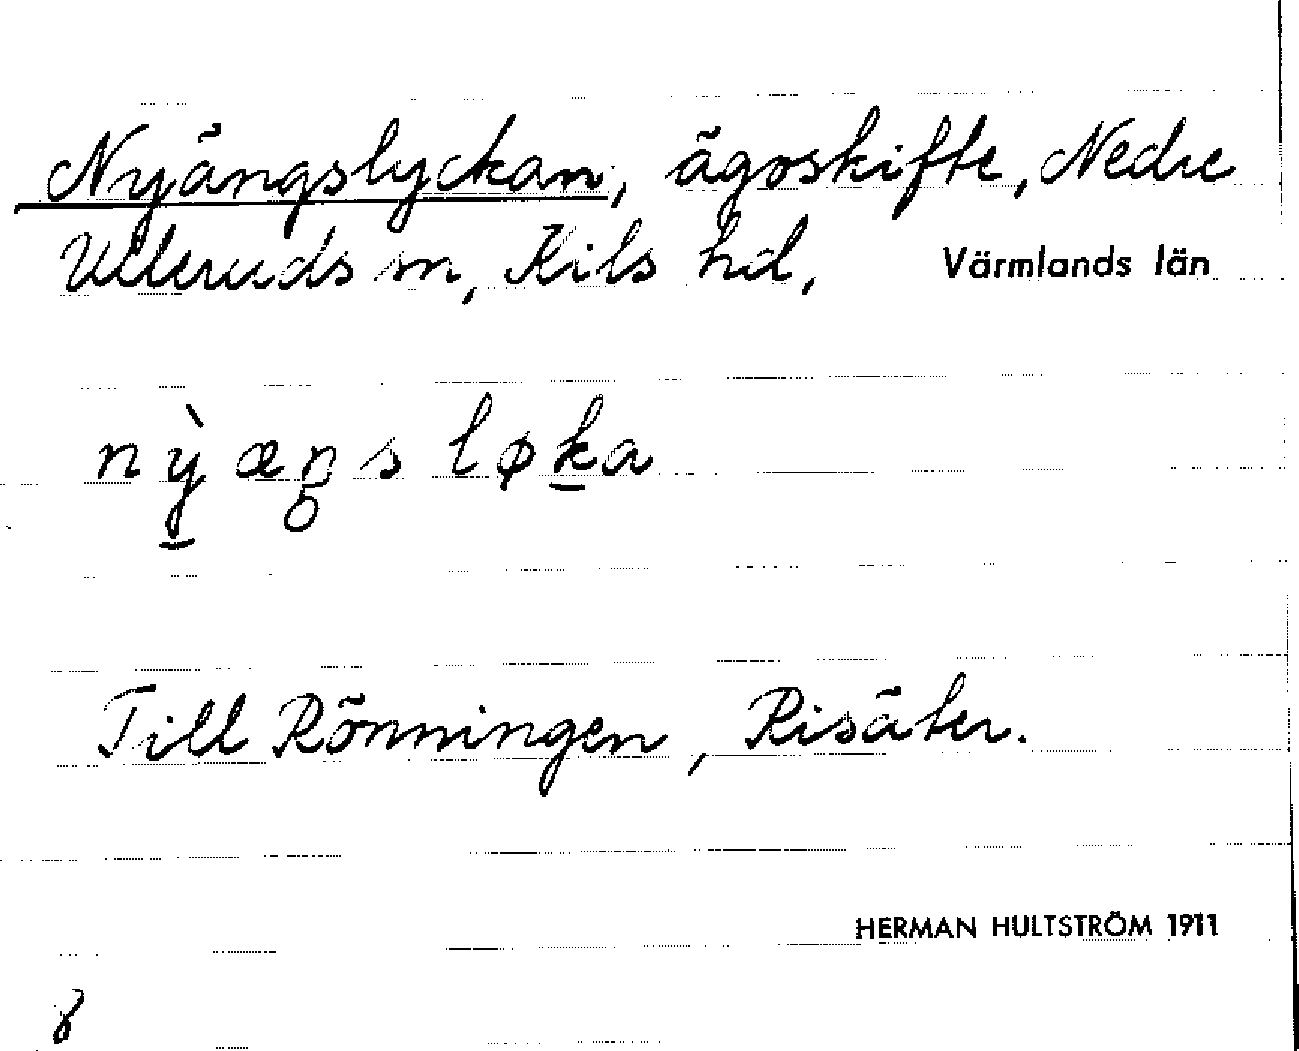 Nyängslyckan, ägoskifte, Nedre
Ulleruds sn, Kils hd, Värmlands län
nỳ̠ æŋs løk̠a
Till Rönningen, Risäter.
HERMAN HULTSTRÖM 1911